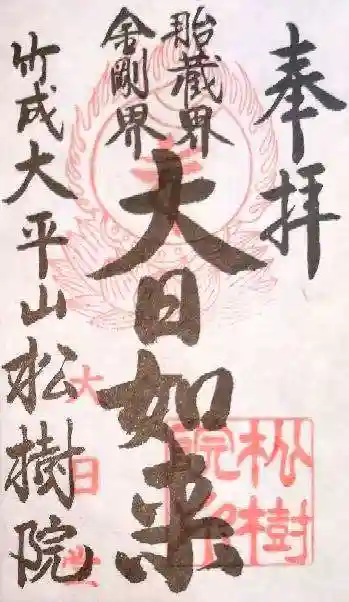 奉拝
胎蔵界
金剛界
大日如来
竹成大平山松樹院
大日
松樹院